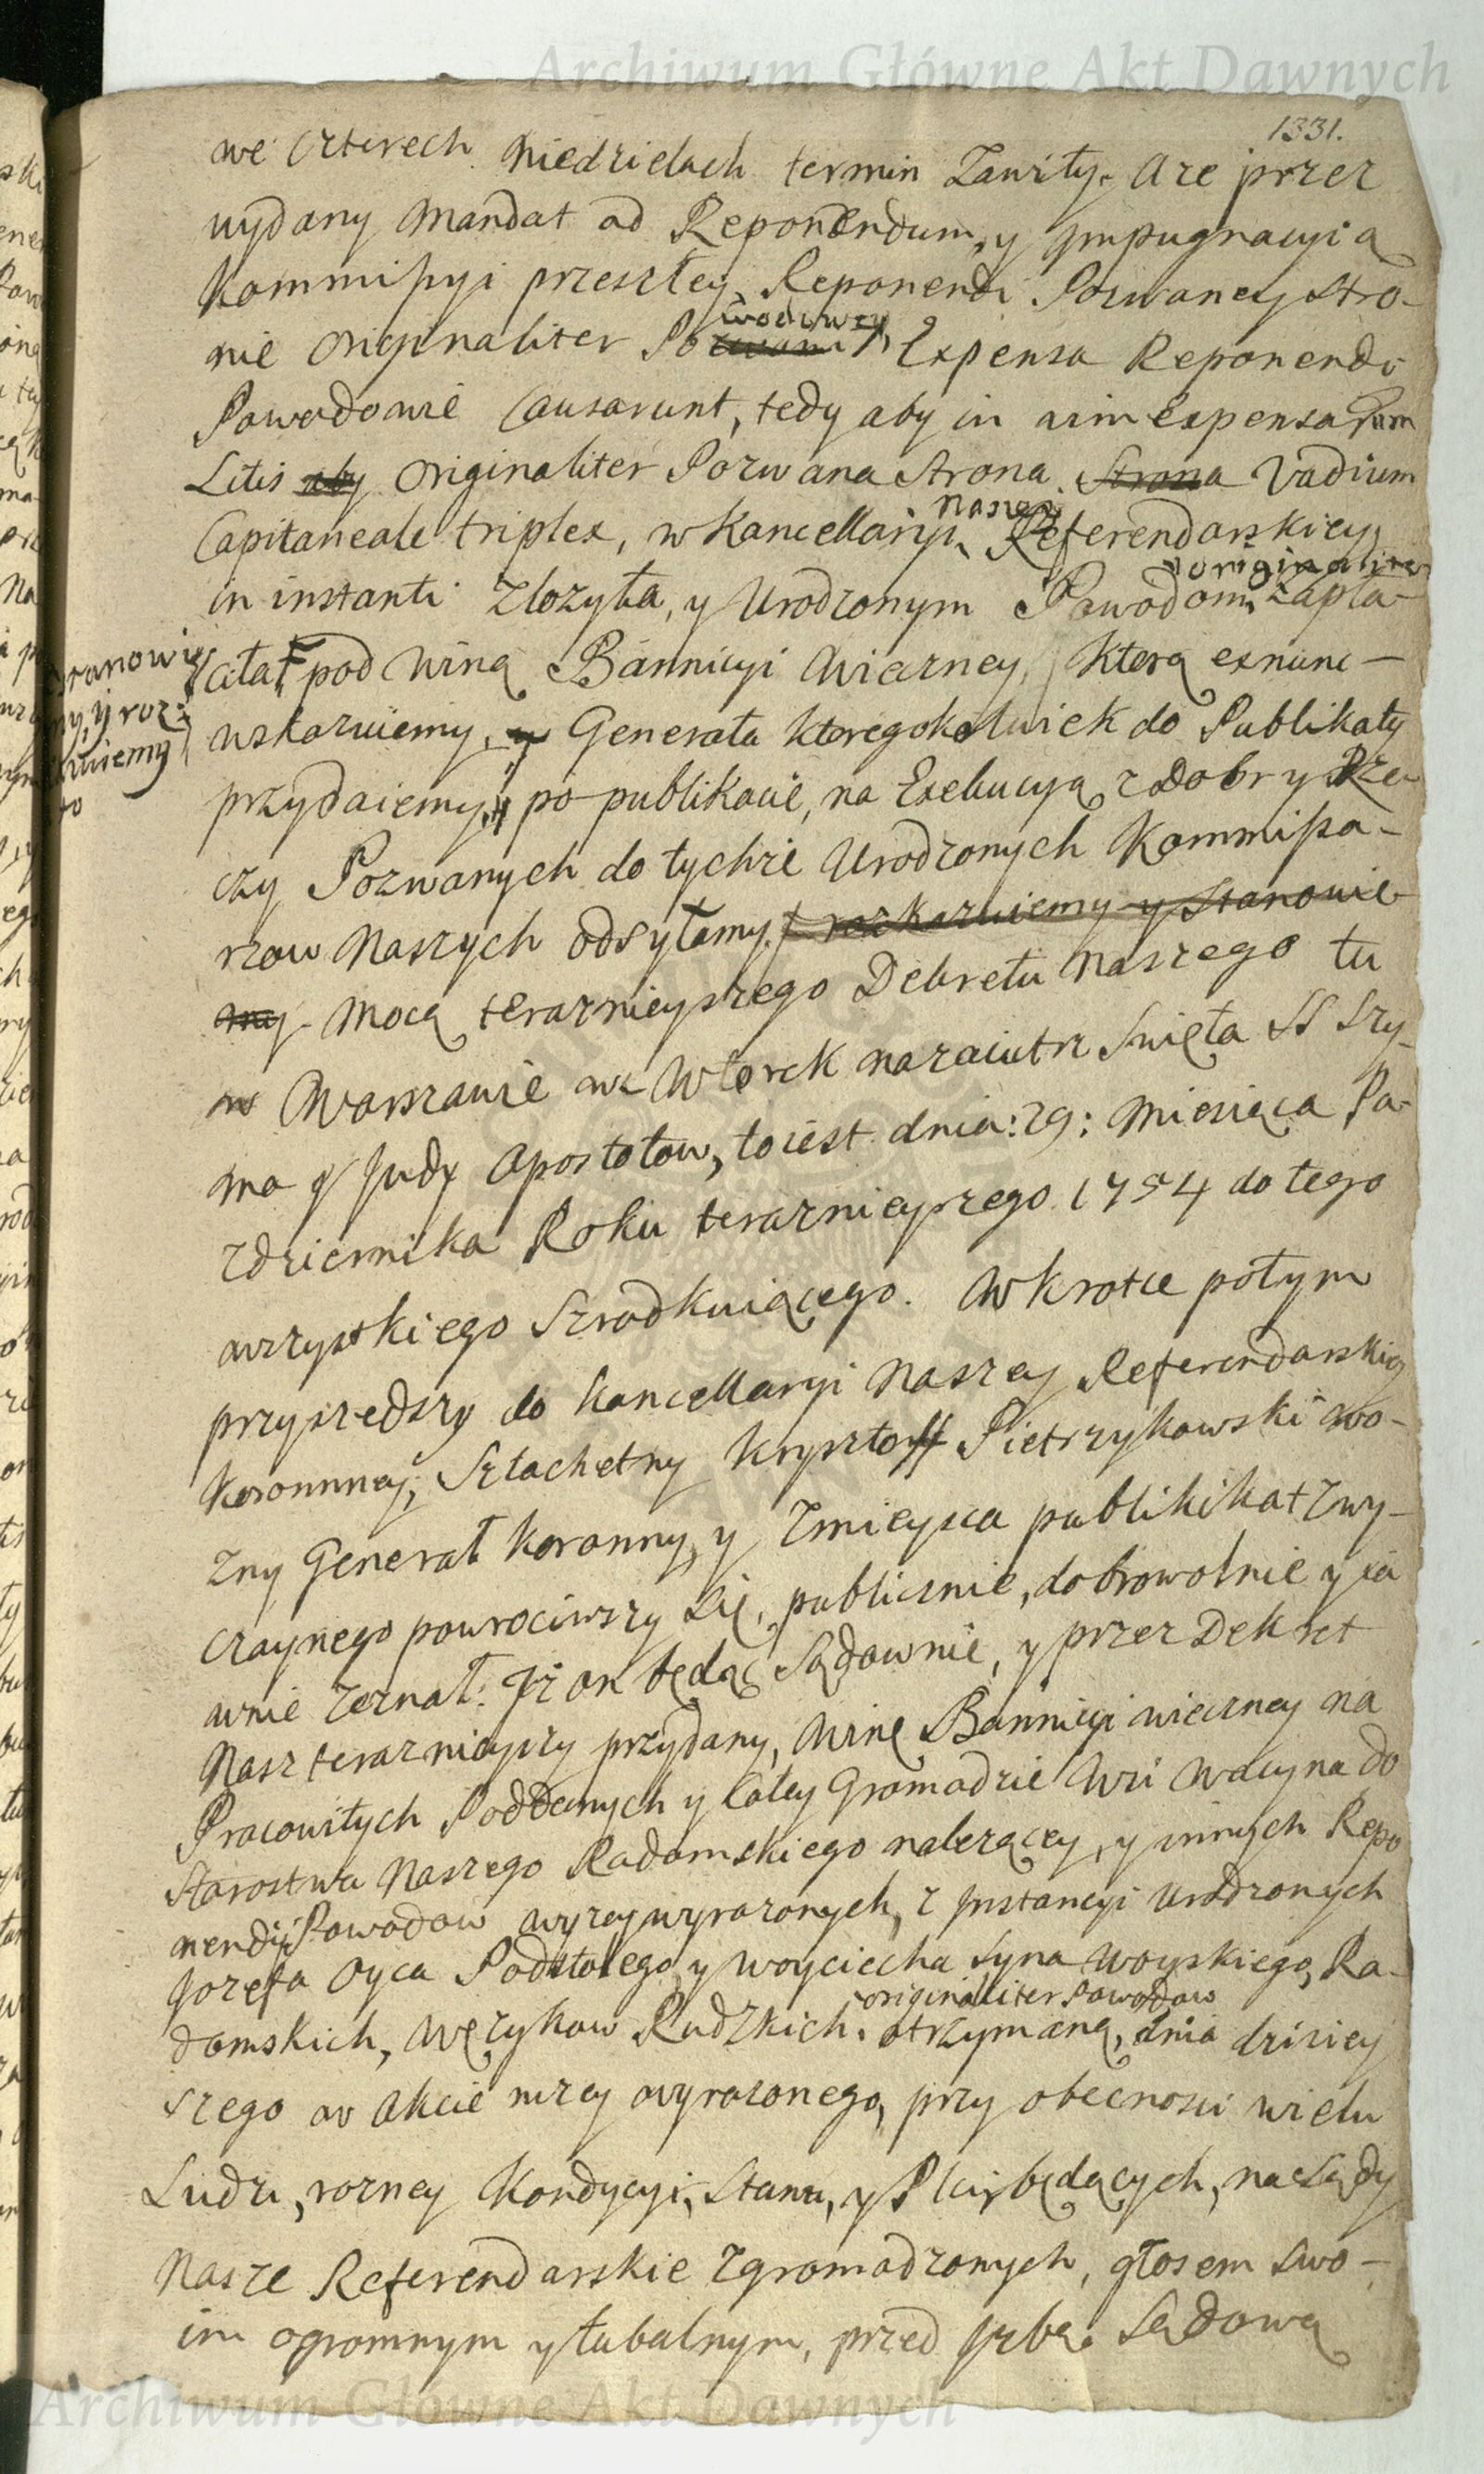 Archiwum Główne Akt Dawnych
1331.
we Czterech Niedzielach termin Zawity. Aze przez
wydany Mandat ad Reponendum, y Jmpugnacyią
Kommissyi przeszłey Reponendi Pozwaney Stro-
nie Originaliter Powodowey, Expensa Reponendi
Powodowie Causarunt, tedy aby in vim expensarum
Litis aby Originaliter Pozwana Strona Strona Vadium
Capitaneale triplex, w Kancellaryi Naszey Referendarskiey
in instanti Zlozyła, y Urodzonym Powodom originaliter zapła-
ciła, pod Winą Bannicyi Wieczney, Ktorą exnunc
wskazuiemy, y Generała ktoregokolwiek do Publikaty
przydaiemy, y po publikacie, na Exekucyą z Dobr y Rze-
czy Pozwanych do tychże Urodzonych Kommissa-
rzow Naszych odsyłamy. rozkazuiemy y Stanowie-
my. Mocą teraznieyszego Dekretu Naszego tu
w Warszawie we Wtorek nazaiutrz Swięta SS Szy-
ma y Judy Apostołow, toiest dnia: 29: Miesiąca Pa-
zdziernika Roku teraznieyszego 1754 do tego
wszystkiego Szrodkuiącego. Wkrotce potym
przyszedszy do Kancellaryi Naszey Referendarskiey
Koronnney, Szlachetny Krysztoff Pietrzykowski Wo-
zny Generał Koronny, y Zmieysca publikikat Zwy-
czaynego powrociwszy się, publicznie, dobrowolnie y ia
wnie zeznał: Jż on będąc Sądownie, y przez Dekret
Nasz teraznieyszy przydany, Winę Bannicyi wieczney na
Pracowitych Poddanych y całey Gromadzie Wsi Wacyna do
Starostwa Naszego Radomskiego nalezącey, y innych Repo
nendi Powodow wyzey wyrazonych, z Jnstancyi Urodzonych
Jozefa Oyca Podstolego, y Woyciecha Syna Woyskiego, Ra-
domskich, Węzykow Rudzkich originaliter Powodow otrzymaną, dnia dzisiey
szego w Akcie nizey wyrazonego, przy obecnosci wielu
Ludzi, rozney Kondycyi, Stanu, y Płci będących, na Sądy
Nasze Referendarskie zgromadzonych, głosem swo-
im ogromnym y tubalnym, przed Jzbą Sądową
Archiwum Główne Akt Dawnych